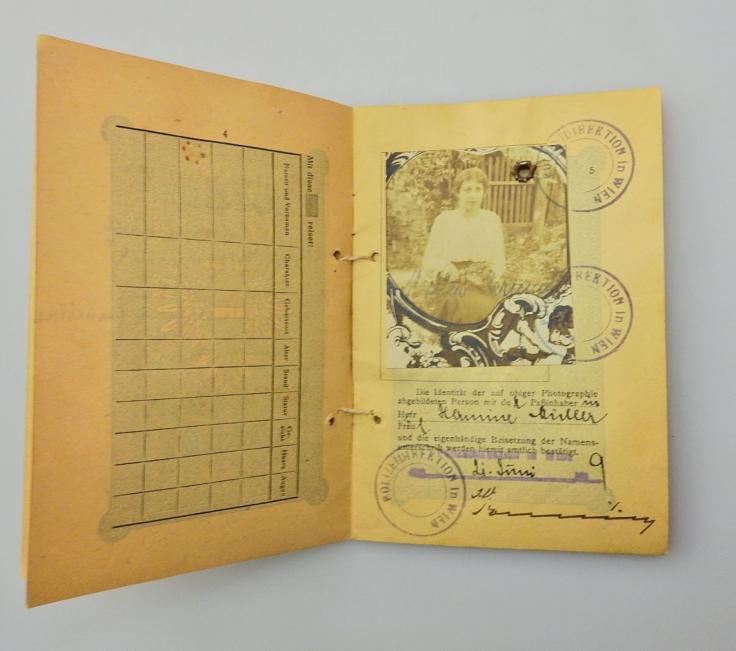 4
Mit diese reiset:
Namen und Vornamen
Charakter
Geburtsort
Alter
Stand
Statur
Ge-
sicht
Haare
Augen
5
DIREKTION in WIEN
DIREKTION in WIEN
Die Identität der auf obiger Photographie
abgebildeten Person mit de Paßinhaber in
Herr Hermine Müller
Frau
und die eigenhändige Beisetzung der Namens-
unterschrift werden hiemit amtlich bestätigt.
Juni 9
POLIZEIDIREKTION in WIEN